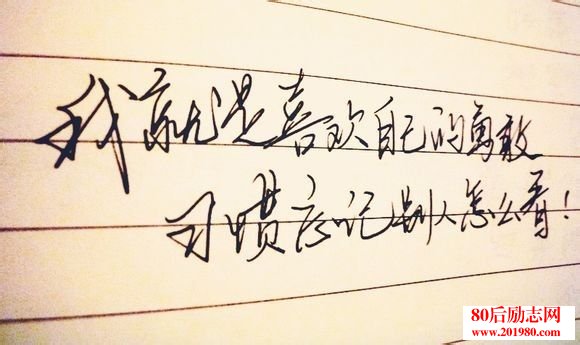 我就是喜欢自己的勇敢
习惯忘记别人怎么看!
80后励志网
www.201980.com